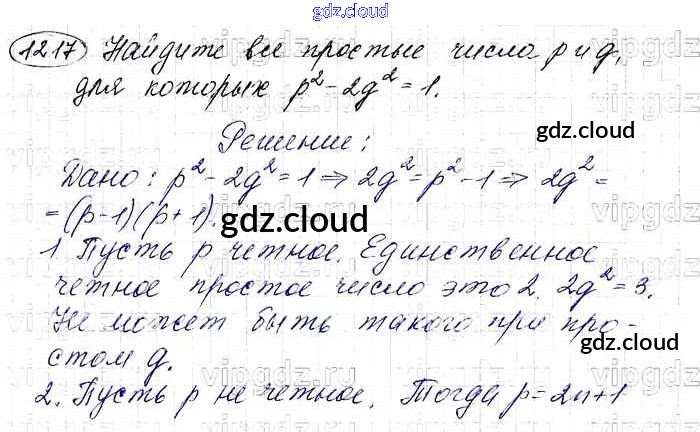 gdz.cloud
12.17 Найдите все простые числа p и q,
для которых p² - 2q² = 1.
gdz.cloud
Решение:
Дано: p² - 2q² = 1 ⇒ 2q² = p² - 1 ⇒ 2q² =
= (p-1)(p+1).
gdz.cloud
1. Пусть p четное. Единственное
четное простое число это 2. 2q² = 3.
Не может быть такого при про-
gdz.cloud
стом q.
2. Пусть p не четное. Тогда p = 2n+1